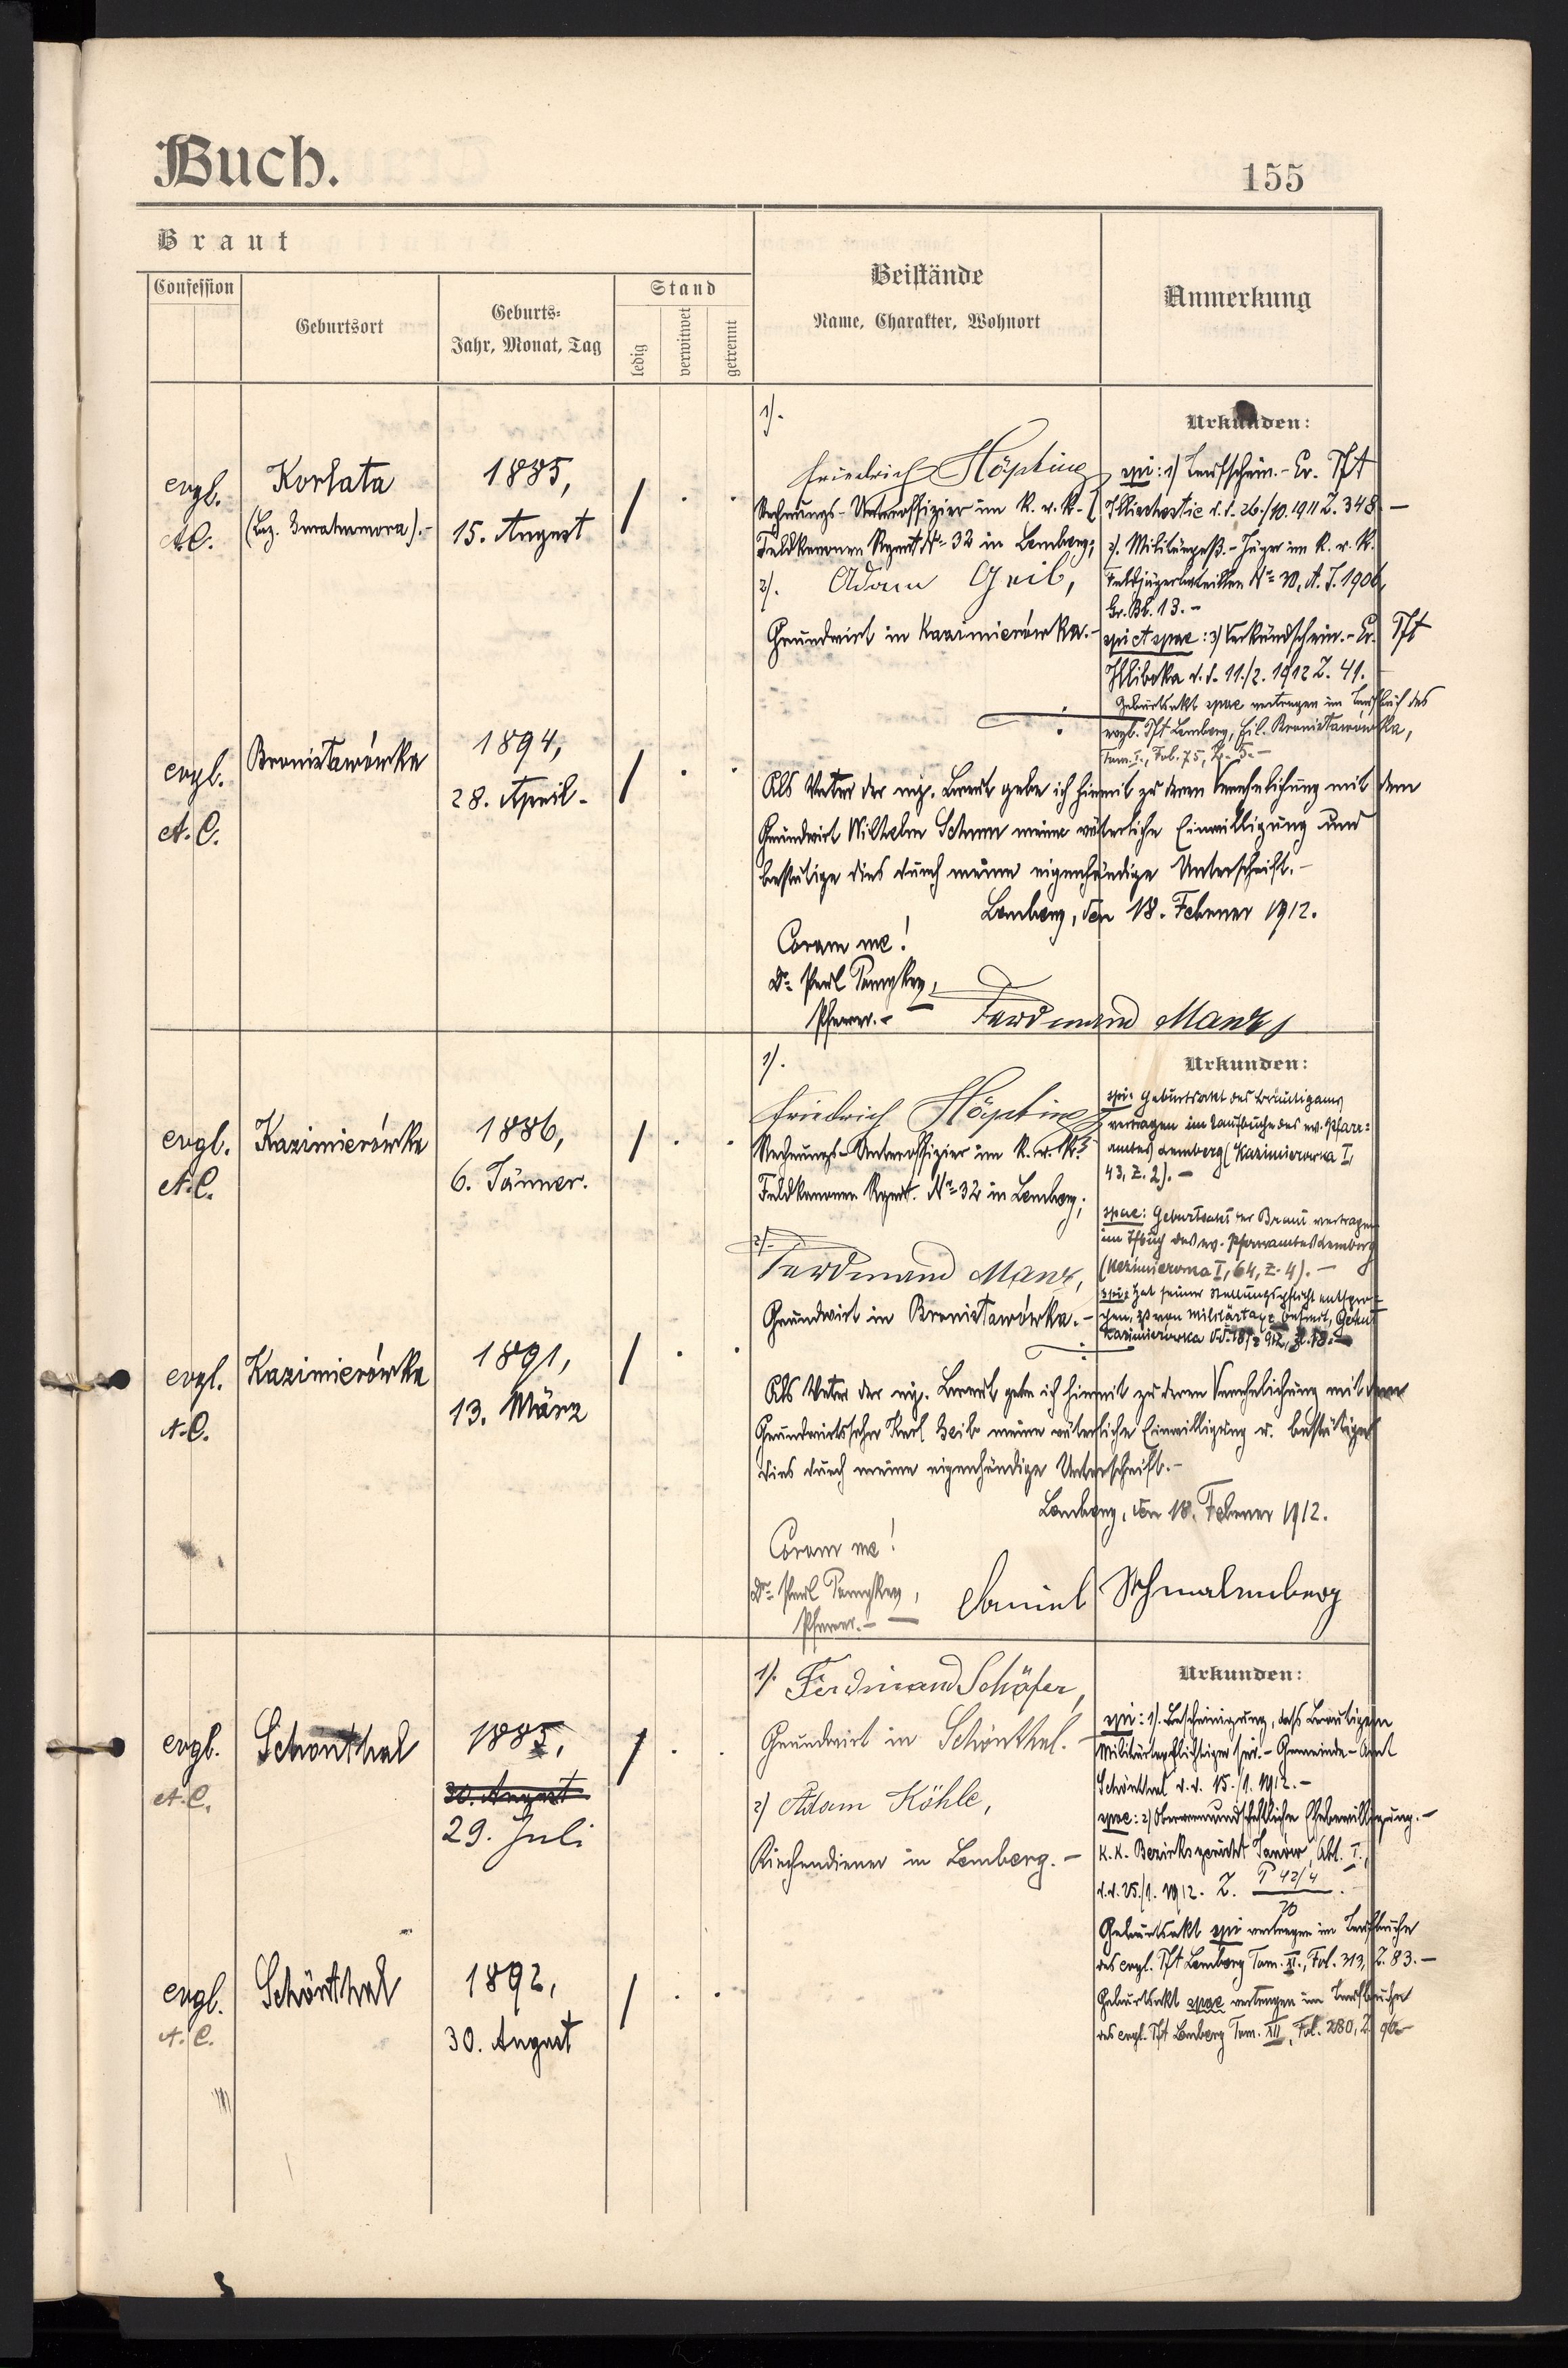 Buch.
155
Braut
Confession
Geburtsort
Geburts-
Jahr, Monat, Tag
Stand
ledig
verwitwet
getrennt
Beistände
Name, Charakter, Wohnort
Anmerkung
evgl.
A.C.
Korlata
1885,
15. August
/ . .
1).
Friedrich Höpting
Rechnungs-Unteroffizier im k. u. k.
Feldkanonen Regmt. No 32 in Lemberg;
2). Adam Geib,
Grundwirt in Kazimierówka.-
Urkunden:
spi: 1) Taufschein.- Ev. Pft
Illischestie d. d. 26./10. 1911 Z. 348.-
2). Militärpaß.- Jäger im k. u. k.
Feldjägerbataillon No 30, A. J. 1906,
Gr. Bl. 13.-
spi et spae: 3) Verkündschein.- Ev. Pft
Hliboka d. d. 11./2. 1912 Z. 41.
Geburtsakt spae vertragen im Taufbuch des
evgl. Pft Lemberg, Fil. Bronisławówka,
Tom. I., Fol. 75, Z. 5.-
evgl.
A.C.
Bronisławówka
1894,
28. April.
/ . .
Als Vater der mj. Braut gebe ich hiermit zu deren Verehelichung mit dem
Grundwirt Wilhelm Schum meine väterliche Einwilligung und
bestätige dies durch meine eigenhändige Unterschrift.-
Lemberg, den 18. Februar 1912.
Coram me!
Dr.
Pfarrer.-
Ferdinand Manz
evgl.
A.C.
Kazimierówka
1886,
6. Jänner.
/ . .
1).
Friedrich Höpting
Rechnungs-Unteroffizier im k. u. k.
Feldkanonen Regmt. No 32 in Lemberg;
2).
Ferdinand Manz,
Grundwirt in Bronisławówka.-
Urkunden:
spi: Geburtsakt des Bräutigams
vertragen im Taufbuche des ev. Pfarr-
amtes Lemberg (Kazimierowka I,
43, Z. 2).-
spae: Geburtsakt der Braut vertragen
im Tfbuch des ev. Pfarramtes Lemberg
(Kazimierowka I, 64, Z. 4).-
spi: hat seiner Stellungspflicht entspro-
chen, ist von Militärtaxe befreit, Gemt
Kazimierówka
evgl.
A.C.
Kazimierówka
1891,
13. März
/ . .
Als Vater der mj. Braut gebe ich hiermit zu deren Verehelichung mit dem
Grundwirtssohn Karl Geib meine väterliche Einwilligung u. bestätige
dies durch meine eigenhändige Unterschrift.-
Lemberg, den 18. Februar 1912.
Coram me!
Dr.
Pfarrer.-
Daniel Schmalenberg
evgl.
A.C.
Schönthal
1885,
30. August
29. Juli
/ . .
1). Ferdinand Schäfer,
Grundwirt in Schönthal.-
2) Adam Köhle,
Kirchendiener in Lemberg.-
Urkunden:
spi: 1). Bescheinigung, dass Bräutigam
Militärtaxpflichtiger sei.- Gemeinde-Amt
Schönthal d. d. 15./1. 1912.-
spae: 2) Obervormundschaftliche Ehebewilligung.-
K. K. Bezirksgericht Janów, Abt. I.,
d. d. 25./1. 1912. Z. P 42/4
Geburtsakt spi vertragen im Taufbuche
des evgl. Pft Lemberg Tom. XI., Fol. 313, Z. 83.-
Geburtsakt spae vertragen im Taufbuche
des evgl. Pft Lemberg Tom. XII, Fol. 280, Z.
evgl.
A.C.
Schönthal
1892,
30. August
/ . .